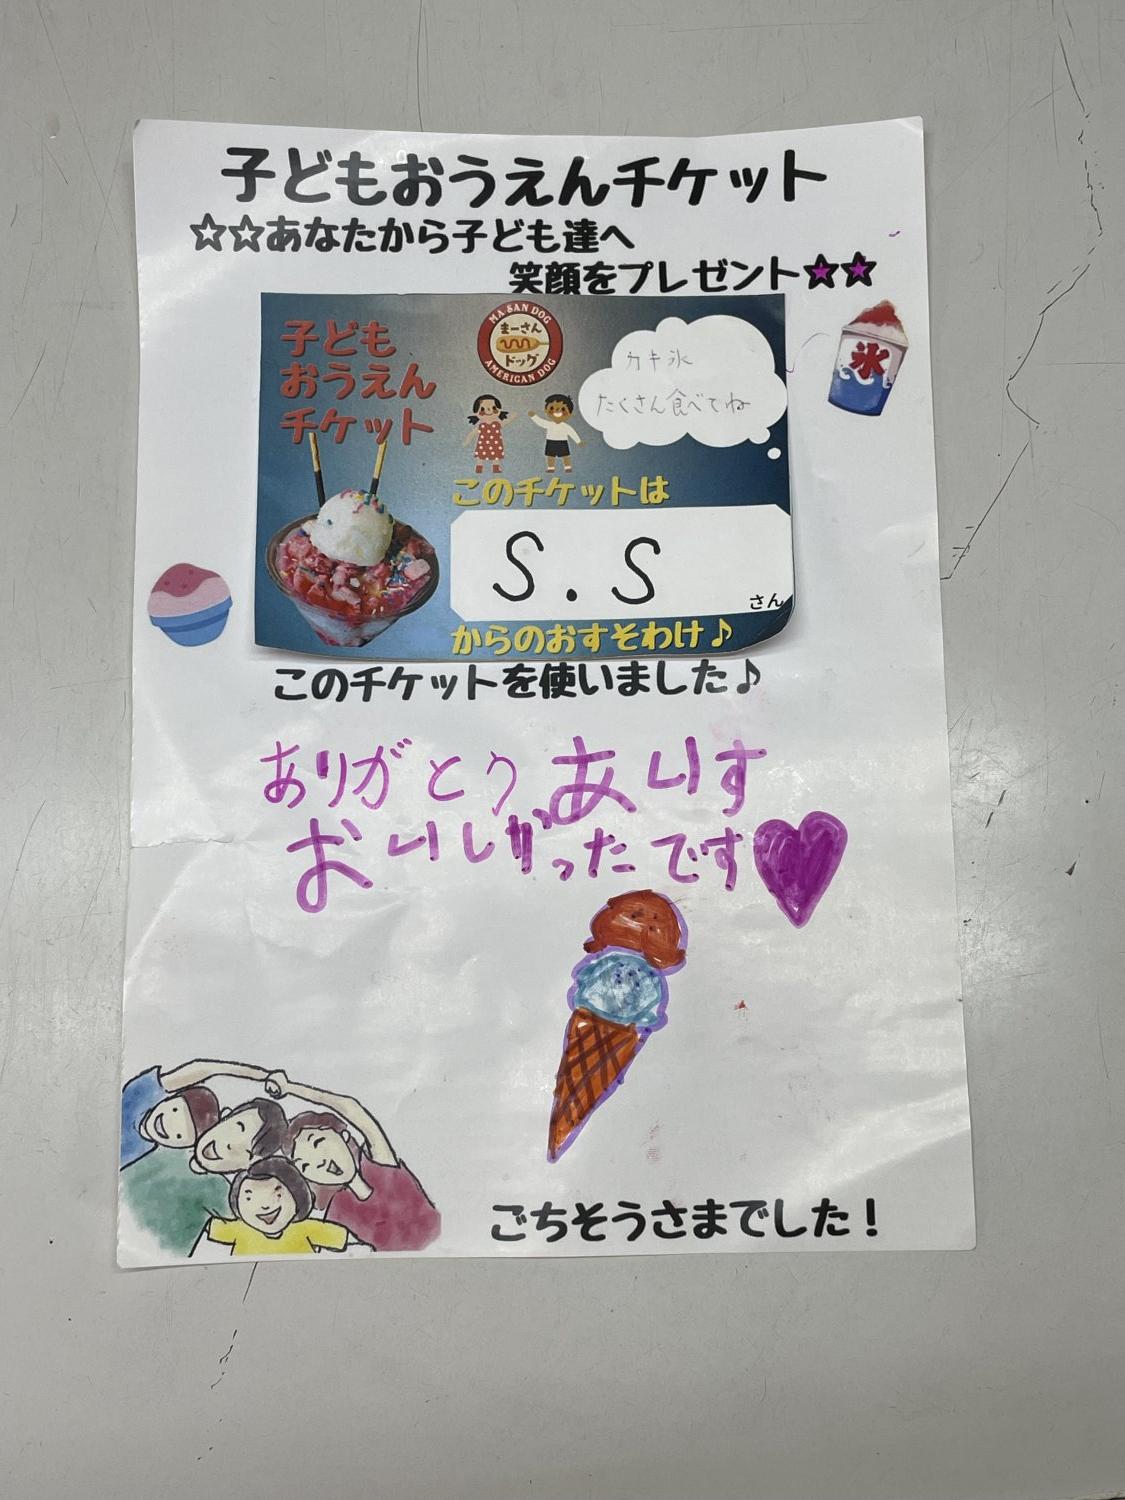 子どもおうえんチケット
☆☆あなたから子ども達へ
笑顔をプレゼント☆☆
子ども
おうえん
チケット
MA SAN DOG
まーさん
ドッグ
AMERICAN DOG
カキ氷
たくさん食べてね
氷
このチケットは
S.S
さん
からのおすそわけ♪
このチケットを使いました♪
ありがとう あいす
おいしかったです
ごちそうさまでした！